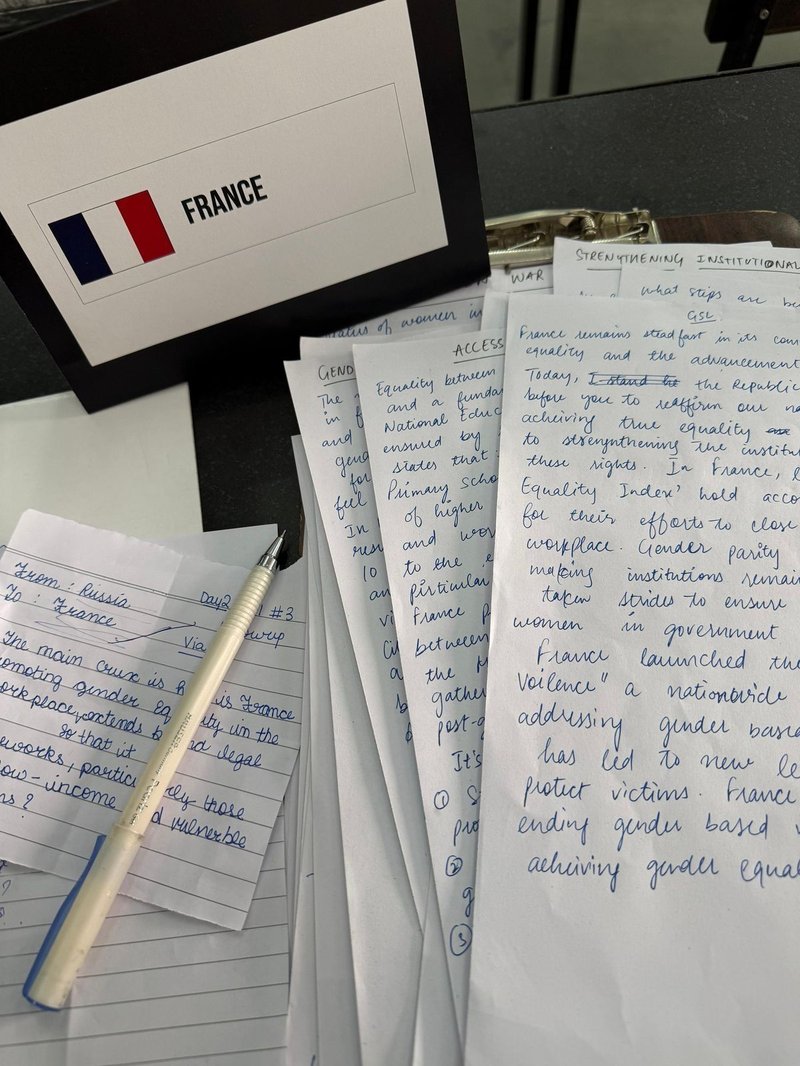 FRANCE
WAR
status of women in
STRENGTHENING INSTITUTIONAL
what steps are be
GSL
France remains steadfast in its com
equality and the advancement
Today, I stand the Republic
before you to reaffirm our
acheiving true equality
to strengthening the institut
these rights. In France,
Equality Index' hold acco
for their efforts to close
workplace. Gender parity
making institutions remain
taken strides to ensure
women in government
France launched the
voilence" a nationwide
addressing gender base
has led to new le
protect victims. France
ending gender based
acheiving gender equal
ACCESS
Equality between
and a funda
National Educ
ensured by
states that
Primary scho
of higher
and wor
to the e
particular
France p
between
the
gather
post-
It's
① S
pro
②
g
③
GEND
The
in f
and
gend
for
feel
In
resu
10
an
vi
Ci
a
b
From : Russia
To : France
Day2 #3
Via
The main crux is h is France
omoting gender Eq ity in the
orkplace, extends b nd legal
so that it
eworks, partic rly those
ow-income d vulnerble
ns ?